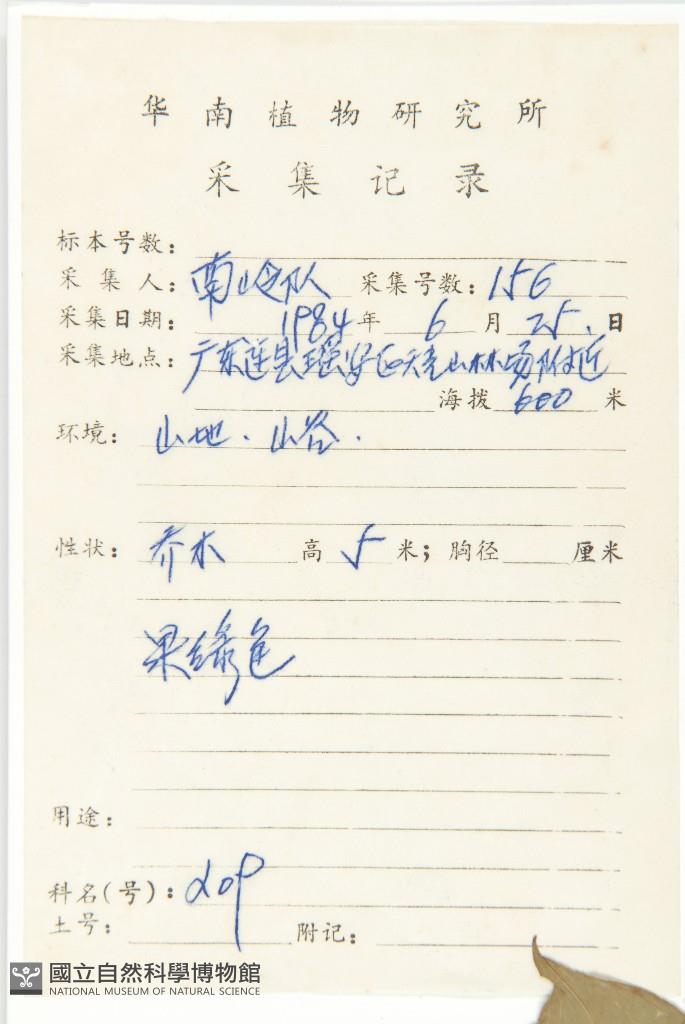 华南植物研究所
采集记录
标本号数：
采集人：南岭队 采集号数：156
采集日期：1984年6月25.日
采集地点：广东连县瑶安区天光山林场附近
海拨600米
环境：山地．山谷．
性状：乔木 高5米；胸径 厘米
果绿色
用途：
科名(号)：209
土号： 附记：
國立自然科學博物館
NATIONAL MUSEUM OF NATURAL SCIENCE